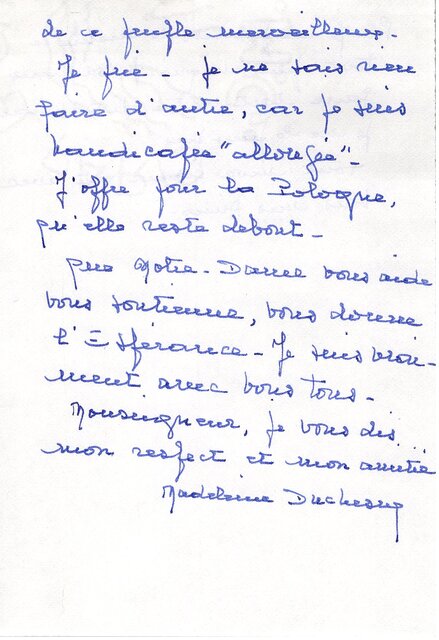 de ce peuple merveilleux.
Je prie - je ne sais rien
faire d'autre, car je suis
handicapée "allongée" -
J'offre pour la Pologne,
qu'elle reste debout -
que Notre-Dame vous aide
vous soutienne, vous donne
l'Espérance - Je suis vrai-
ment avec vous tous -
Monseigneur, je vous dis...
mon respect et mon amitié
Madeleine